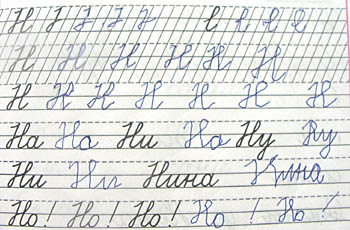 Н Н Н Н Н Н
Н Н Н Н Н Н Н
На На Ни На Ну Ну
Ни Ни Нина Нина
Но! Но! Но! Но! Но!